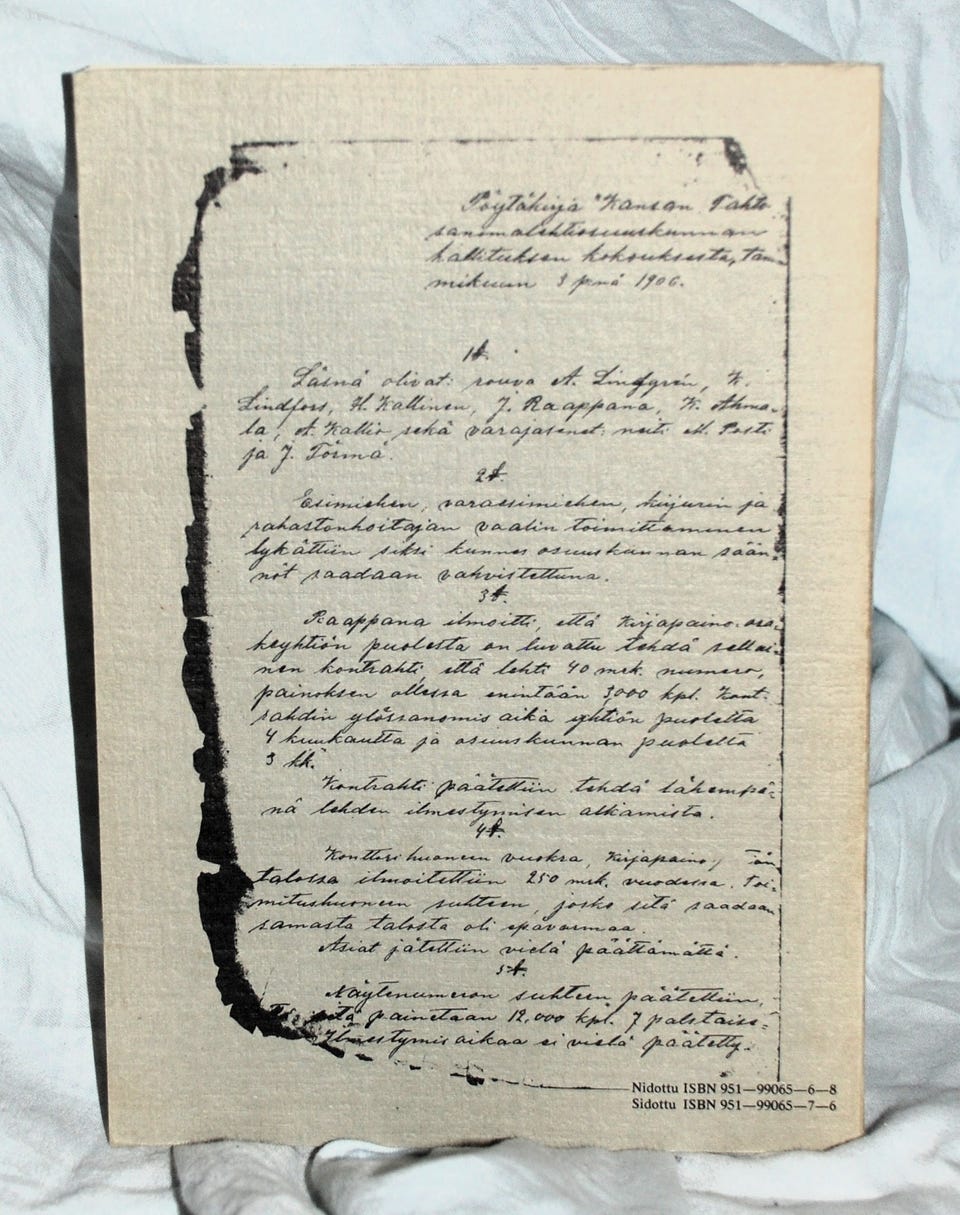 Pöytäkirja "Kansan Tahto
sanomalehtiosuuskunnan
hallituksen kokouksesta, tam-
mikuun 3 pnä 1906.
1 §.
Läsnä olivat: rouva A. Lindgren, K.
Lindfors, H. Kallinen, J. Raappana, K. Ahma-
la, A. Kallio sekä varajäsenet: neiti M. Posti
ja J. Törmä.
2 §.
Esimiehen, varaesimiehen, kirjurin ja
rahastonhoitajan vaalin toimittaminen
lykättiin siksi kunnes osuuskunnan sään-
nöt saadaan vahvistettuna.
3 §.
Raappana ilmoitti, että Kirjapaino-osa-
keyhtiön puolesta on luvattu tehdä sellai-
nen kontrahti, että lehti 40 mrk. numero,
painoksen ollessa enintään 3,000 kpl. Kont-
rahdin ylössanomisaika yhtiön puolelta
4 kuukautta ja osuuskunnan puolelta
3 kk.
Kontrahti päätettiin tehdä lähempä-
nä lehden ilmestymisen alkamista.
4 §.
Konttorihuoneen vuokra, Kirjapaino
talossa ilmoitettiin 250 mrk. vuodessa. Toi-
mitushuoneen suhteen, josko sitä saadaan
samasta talosta oli epävarmaa.
Asiat jätettiin vielä päättämättä.
5 §.
Näytenumeron suhteen päätettiin,
että painetaan 12,000 kpl. 7 palstaise-
Ilmestymisaikaa ei vielä päätetty.
Nidottu ISBN 951—99065—6—8
Sidottu ISBN 951—99065—7—6